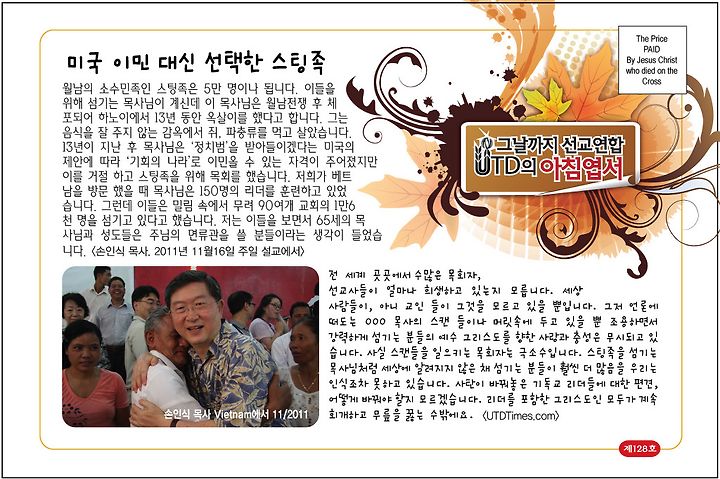 미국 이민 대신 선택한 스팅족
The Price
PAID
By Jesus Christ
who died on the
Cross
월남의 소수민족인 스팅족은 5만 명이나 됩니다. 이들을
위해 섬기는 목사님이 계신데 이 목사님은 월남전쟁 후 체
포되어 하노이에서 13년 동안 옥살이를 했다고 합니다. 그는
음식을 잘 주지 않는 감옥에서 쥐, 파충류를 먹고 살았습니다.
13년이 지난 후 목사님은 '정치범'을 받아들이겠다는 미국의
제안에 따라 '기회의 나라'로 이민올 수 있는 자격이 주어졌지만
이를 거절 하고 스팅족을 위해 목회를 했습니다. 저희가 베트
남을 방문 했을 때 목사님은 150명의 리더를 훈련하고 있었
습니다. 그런데 이들은 밀림 속에서 무려 90여개 교회의 1만6
천 명을 섬기고 있다고 했습니다. 저는 이들을 보면서 65세의 목
사님과 성도들은 주님의 면류관을 쓸 분들이라는 생각이 들었습
니다. <손인식 목사. 2011년 11월16일 주일 설교에서>
그날까지 선교연합
UTD의 아침엽서
전 세계 곳곳에서 수많은 목회자,
선교사들이 얼마나 희생하고 있는지 모릅니다. 세상
사람들이, 아니 교인 들이 그것을 모르고 있을 뿐입니다. 그저 언론에
떠도는 OOO 목사의 스캔 들이나 머릿속에 두고 있을 뿐 조용하면서
강력하게 섬기는 분들의 예수 그리스도를 향한 사랑과 충성은 무시되고 있
습니다. 사실 스캔들을 일으키는 목회자는 극소수입니다. 스팅족을 섬기는
목사님처럼 세상에 알려지지 않은 채 섬기는 분들이 훨씬 더 많음을 우리는
인식조차 못하고 있습니다. 사탄이 바꿔놓은 기독교 리더들에 대한 편견,
어떻게 바꿔야 할지 모르겠습니다. 리더를 포함한 그리스도인 모두가 계속
회개하고 무릎을 꿇는 수밖에요. <UTDTimes.com>
손인식 목사 Vietnam에서 11/2011
제128호